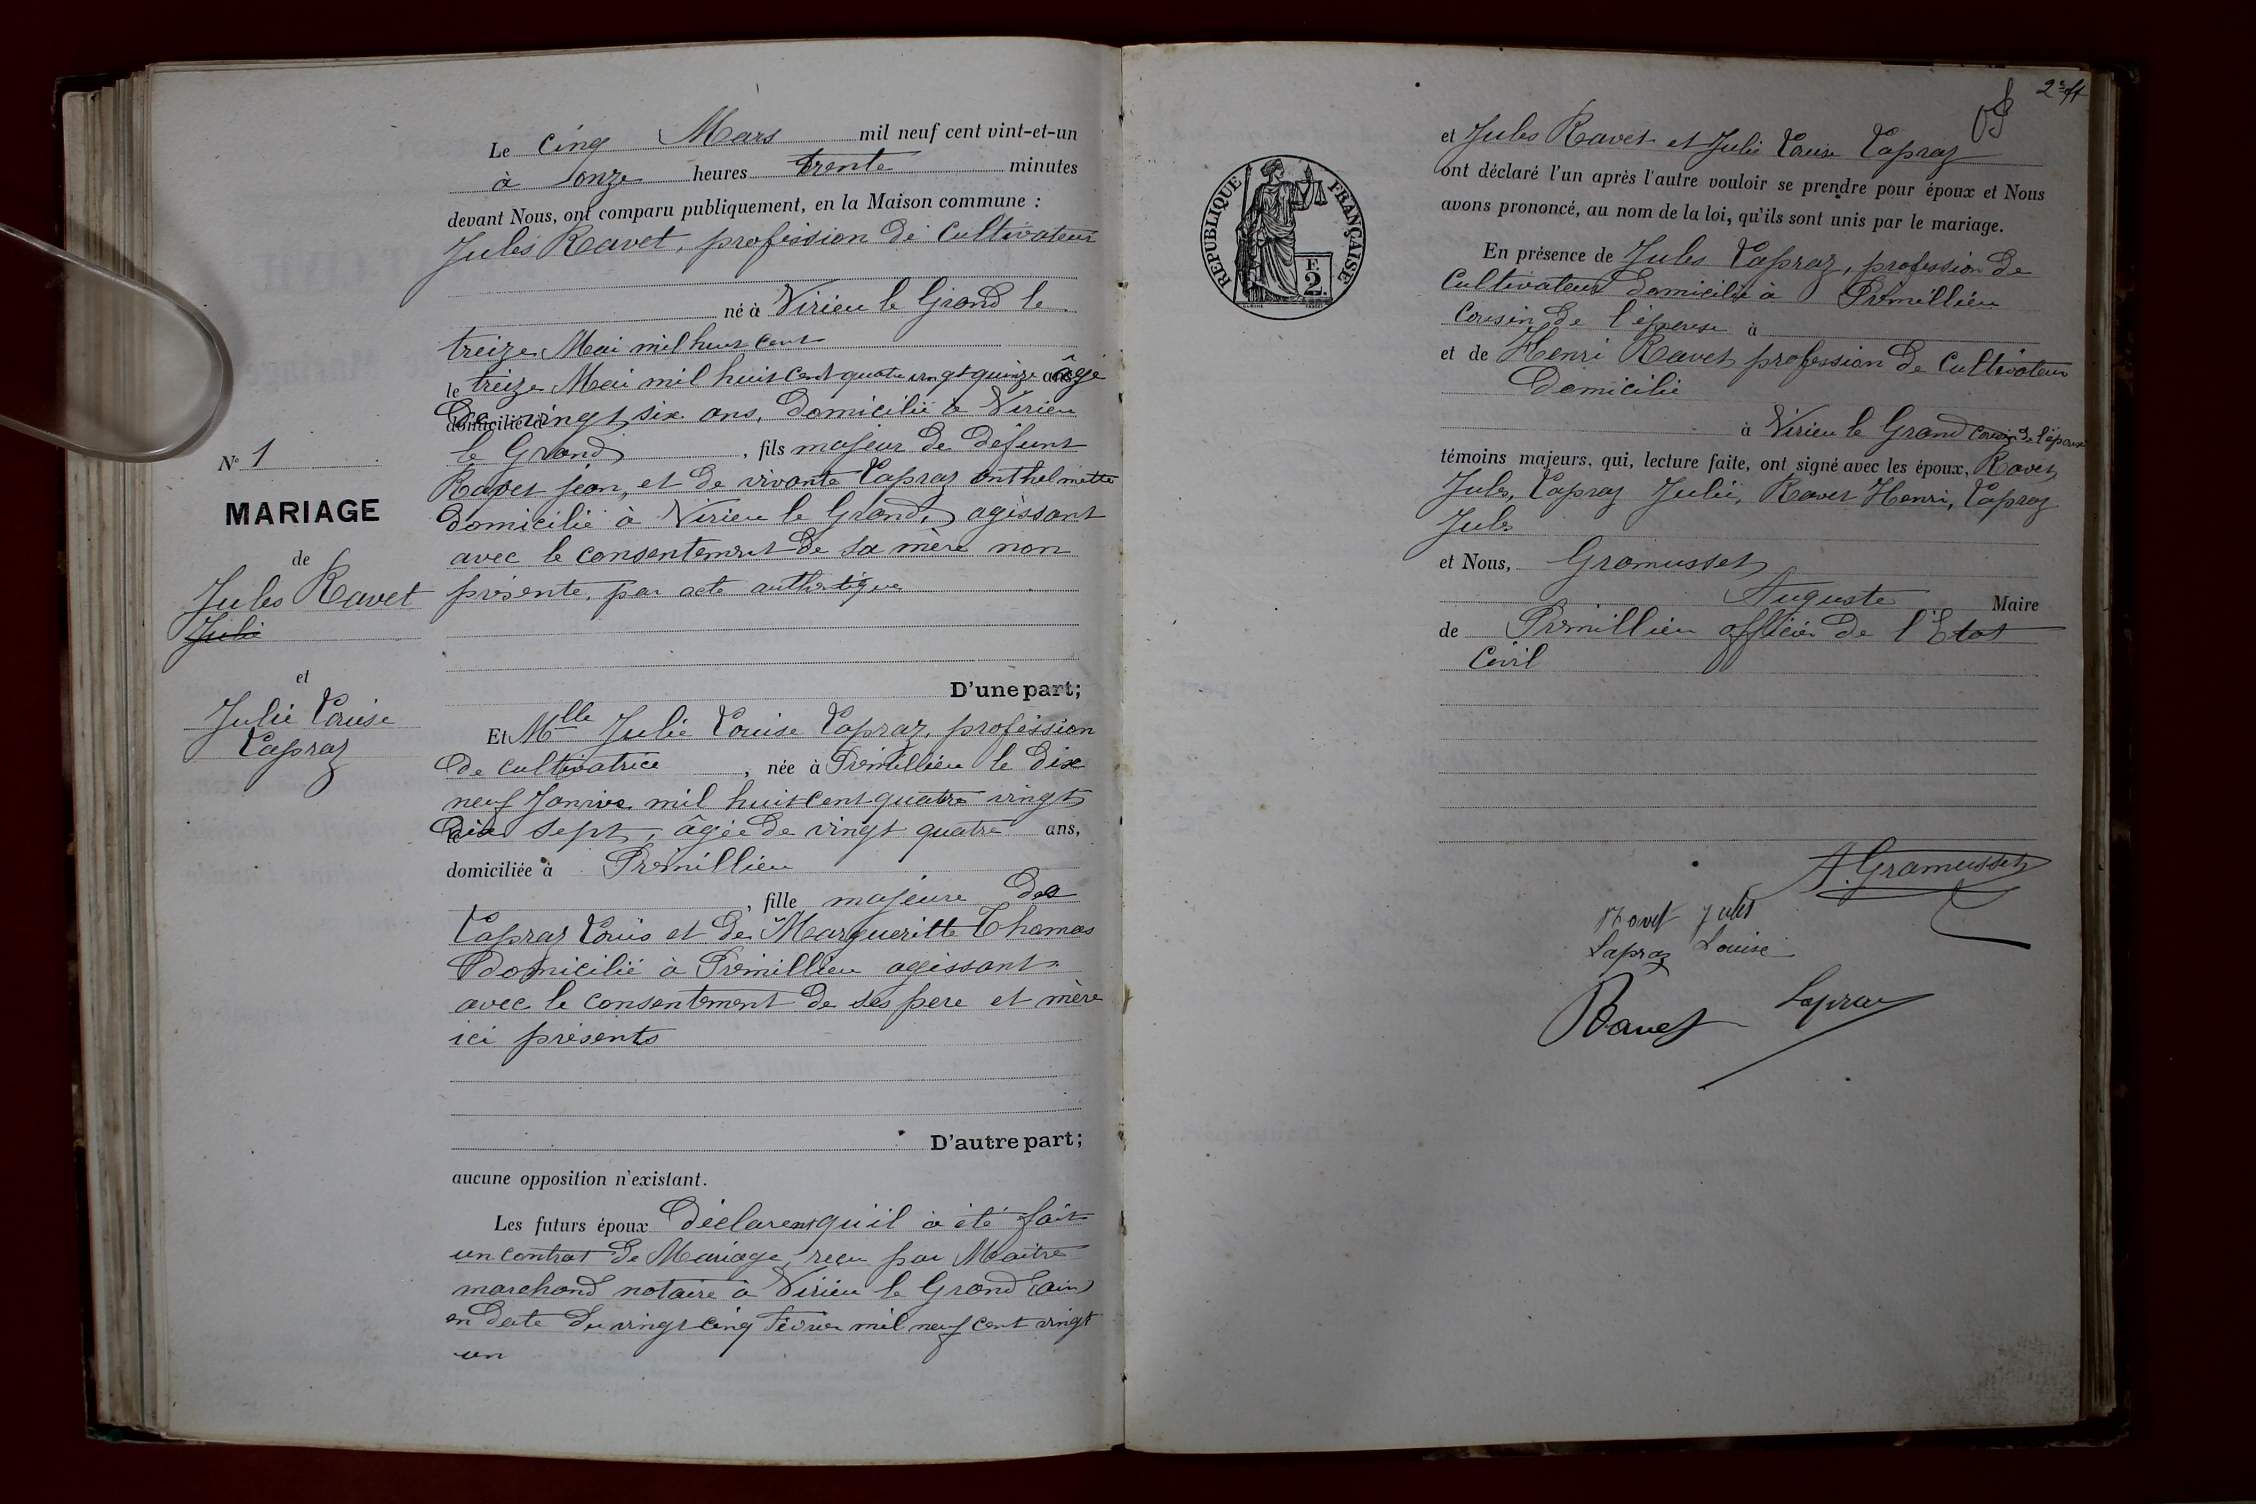 Le cinq Mars mil neuf cent vint-et-un
à onze heures trente minutes
devant Nous, ont comparu publiquement, en la Maison commune :
Jules Ravet, profession de Cultivateur
né à Virieu le Grand le
treize Mai mil huit cent
le treize Mai mil huit cent quatre vingt quinze ans âgé
domicilié à de vingt six ans, domicilié à Virieu
le Grand, fils majeur de défunt
Ravet jean, et de vivante Lapraz Anthelmette
domicilié à Virieu le Grand, agissant
avec le consentement de sa mère non
présente, par acte authentique
D'une part;
Et Mlle Julie Louise Lapraz, profession
de cultivatrice, née à Prémillieu le dix
neuf Janvier mil huit cent quatre vingt
le dix sept, âgée de vingt quatre ans,
domiciliée à Prémillieu
, fille majeure des
Lapraz Louis et de Margueritte Thomas
domicilié à Prémillieu agissant
avec le consentement de ses pere et mère
ici présents
D'autre part;
aucune opposition n'existant.
Les futurs époux déclarent qu'il à été fait
un contrat de Mariage, reçu par Maître
marchand notaire à Virieu le Grand (ain)
en date du vingt-cinq février mil neuf cent vingt
un
N° 1
MARIAGE
de
Jules Ravet
Julie
et
Julie Louise
Lapraz
2e ff
et Jules Ravet et Julie Louise Lapraz
ont déclaré l'un après l'autre vouloir se prendre pour époux et Nous
avons prononcé, au nom de la loi, qu'ils sont unis par le mariage.
REPUBLIQUE FRANÇAISE
F.
2.
En présence de Jules Lapraz, profession de
Cultivateur domicilié à Prémillieu
Cousin de l'épouse à
et de Henri Ravet profession de Cultivateur
Domicilié
à Virieu le Grand Cousin de l'épouse
témoins majeurs, qui, lecture faite, ont signé avec les époux, Ravet
Jules, Lapraz Julie, Ravet Henri, Lapraz
Jules
et Nous, Gramusset
Auguste Maire
de Prémillieu officier de l'Etat
Civil
A. Gramusset
Ravet Jules
Lapraz Louise
Ravet Lapraz